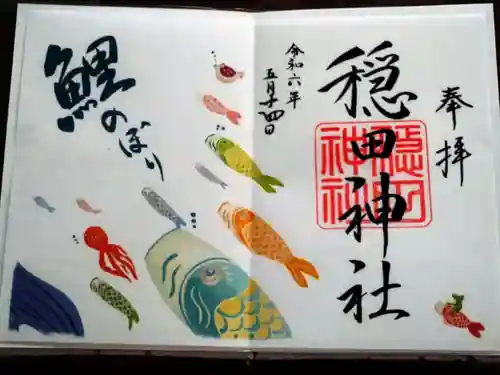 奉拝
穏田神社
穏田神社
令和六年
五月十四日
鯉のぼり